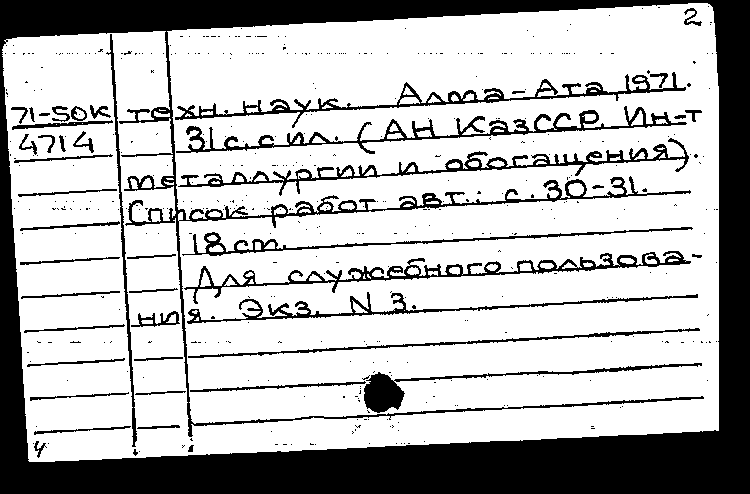 2
71-50К техн. наук. Алма-Ата, 1971.
4714 31 с. с ил. (АН КазССР. Ин-т
металлургии и обогащения).
Список работ авт.: с. 30-31.
18 cm.
Для служебного пользова-
ния. Экз. N 3.
4